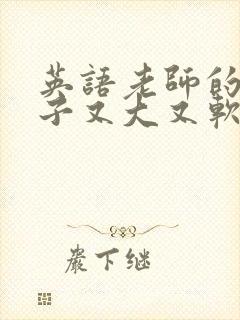 英語老師的
子又大又軟
嚴下继